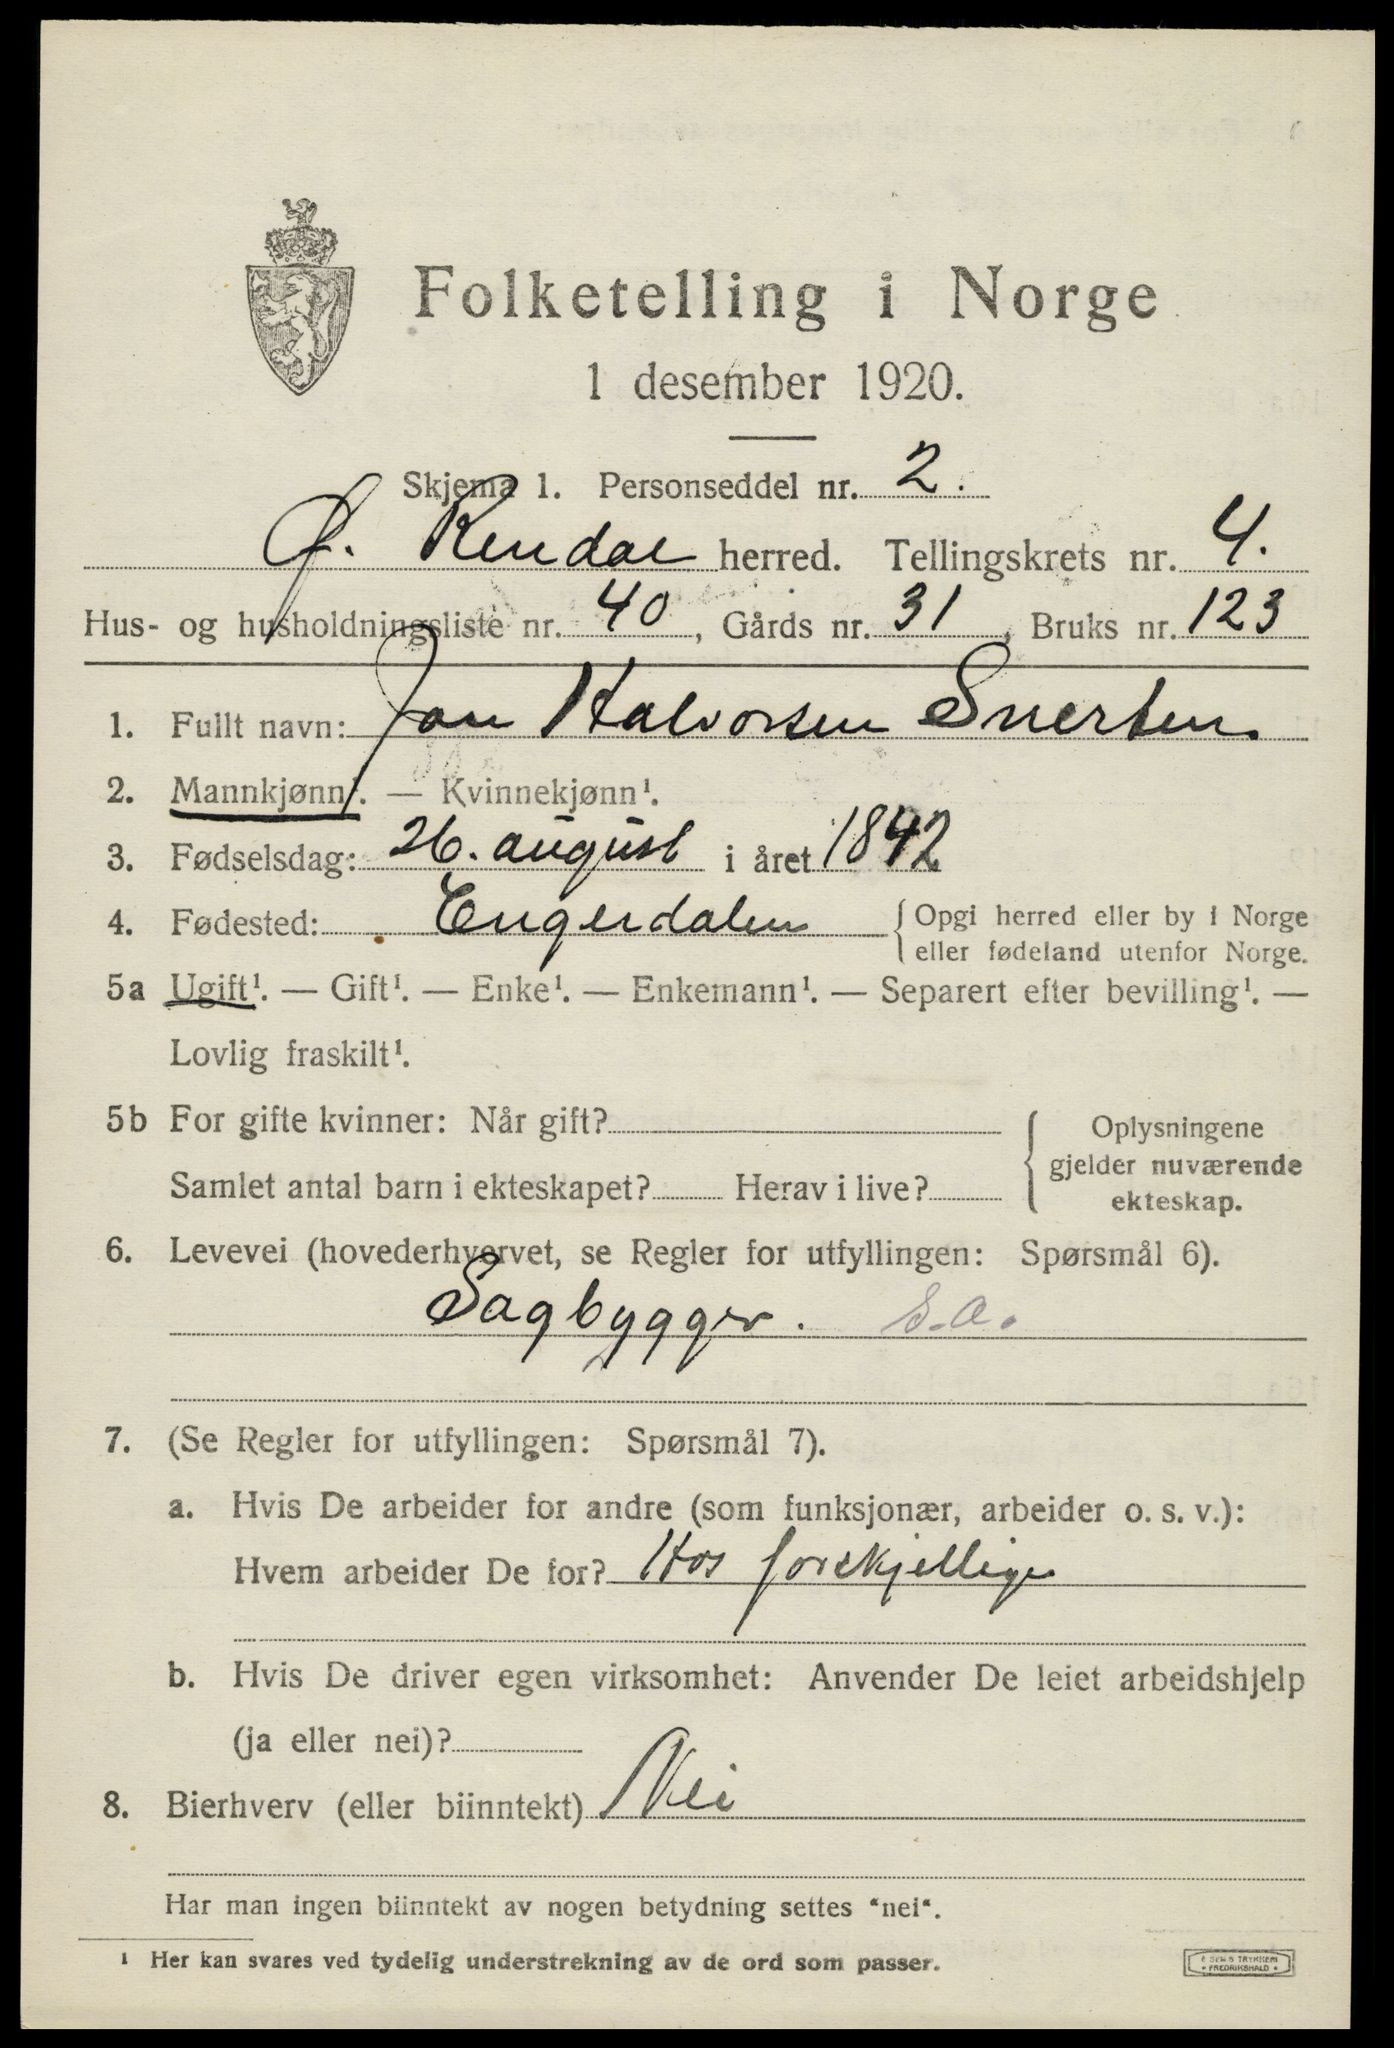 Folketelling i Norge
1 desember 1920.
Skjema 1. Personseddel nr. 2.
Ø. Rendal herred. Tellingskrets nr. 4.
Hus- og husholdningsliste nr. 40, Gårds nr. 31, Bruks nr. 123
1. Fullt navn: Jon Halvorsen Snerten.
2. Mannkjønn¹. — Kvinnekjønn¹.
3. Fødselsdag: 26. august i året 1842
4. Fødested: Engerdalen { Opgi herred eller by i Norge
eller fødeland utenfor Norge.
5a Ugift¹. — Gift¹. — Enke¹. — Enkemann¹. — Separert efter bevilling¹. —
Lovlig fraskilt¹.
5b For gifte kvinner: Når gift?
Samlet antal barn i ekteskapet? Herav i live?
Oplysningene
gjelder nuværende
ekteskap.
6. Levevei (hovederhvervet, se Regler for utfyllingen: Spørsmål 6).
Sagbygger. S.a.
7. (Se Regler for utfyllingen: Spørsmål 7).
a. Hvis De arbeider for andre (som funksjonær, arbeider o. s. v.):
Hvem arbeider De for? Hos forskjellige
b. Hvis De driver egen virksomhet: Anvender De leiet arbeidshjelp
(ja eller nei)?
8. Bierhverv (eller biinntekt) Nei
Har man ingen biinntekt av nogen betydning settes "nei".
¹ Her kan svares ved tydelig understrekning av de ord som passer.
TRYKKERI
• FREDRIKSHALD •